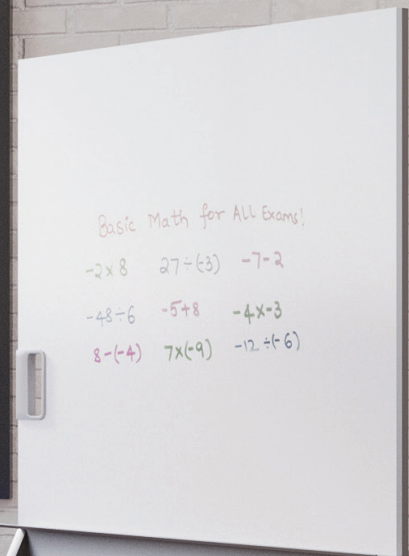 Basic Math for ALL Exams!
-2×8 27÷(-3) -7-2
-48÷6 -5+8 -4×-3
8-(-4) 7×(-9) -12÷(-6)